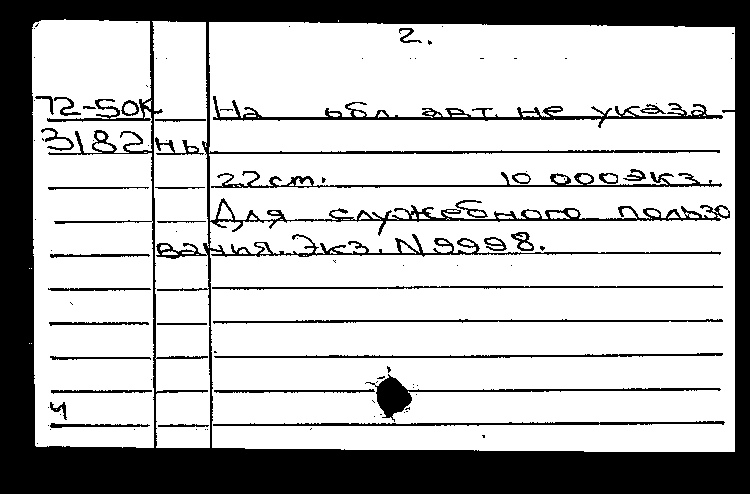 2.
72-50К На обл. авт. не указа-
3182 ны
22см. 10 000экз.
Для служебного пользо
вания. Экз. N 9998.
ч